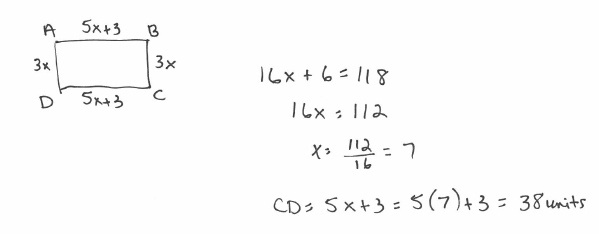 A 5x+3 B
3x 3x
D 5x+3 C
16x + 6 = 118
16x = 112
x = 112/16 = 7
CD = 5x+3 = 5(7)+3 = 38 units